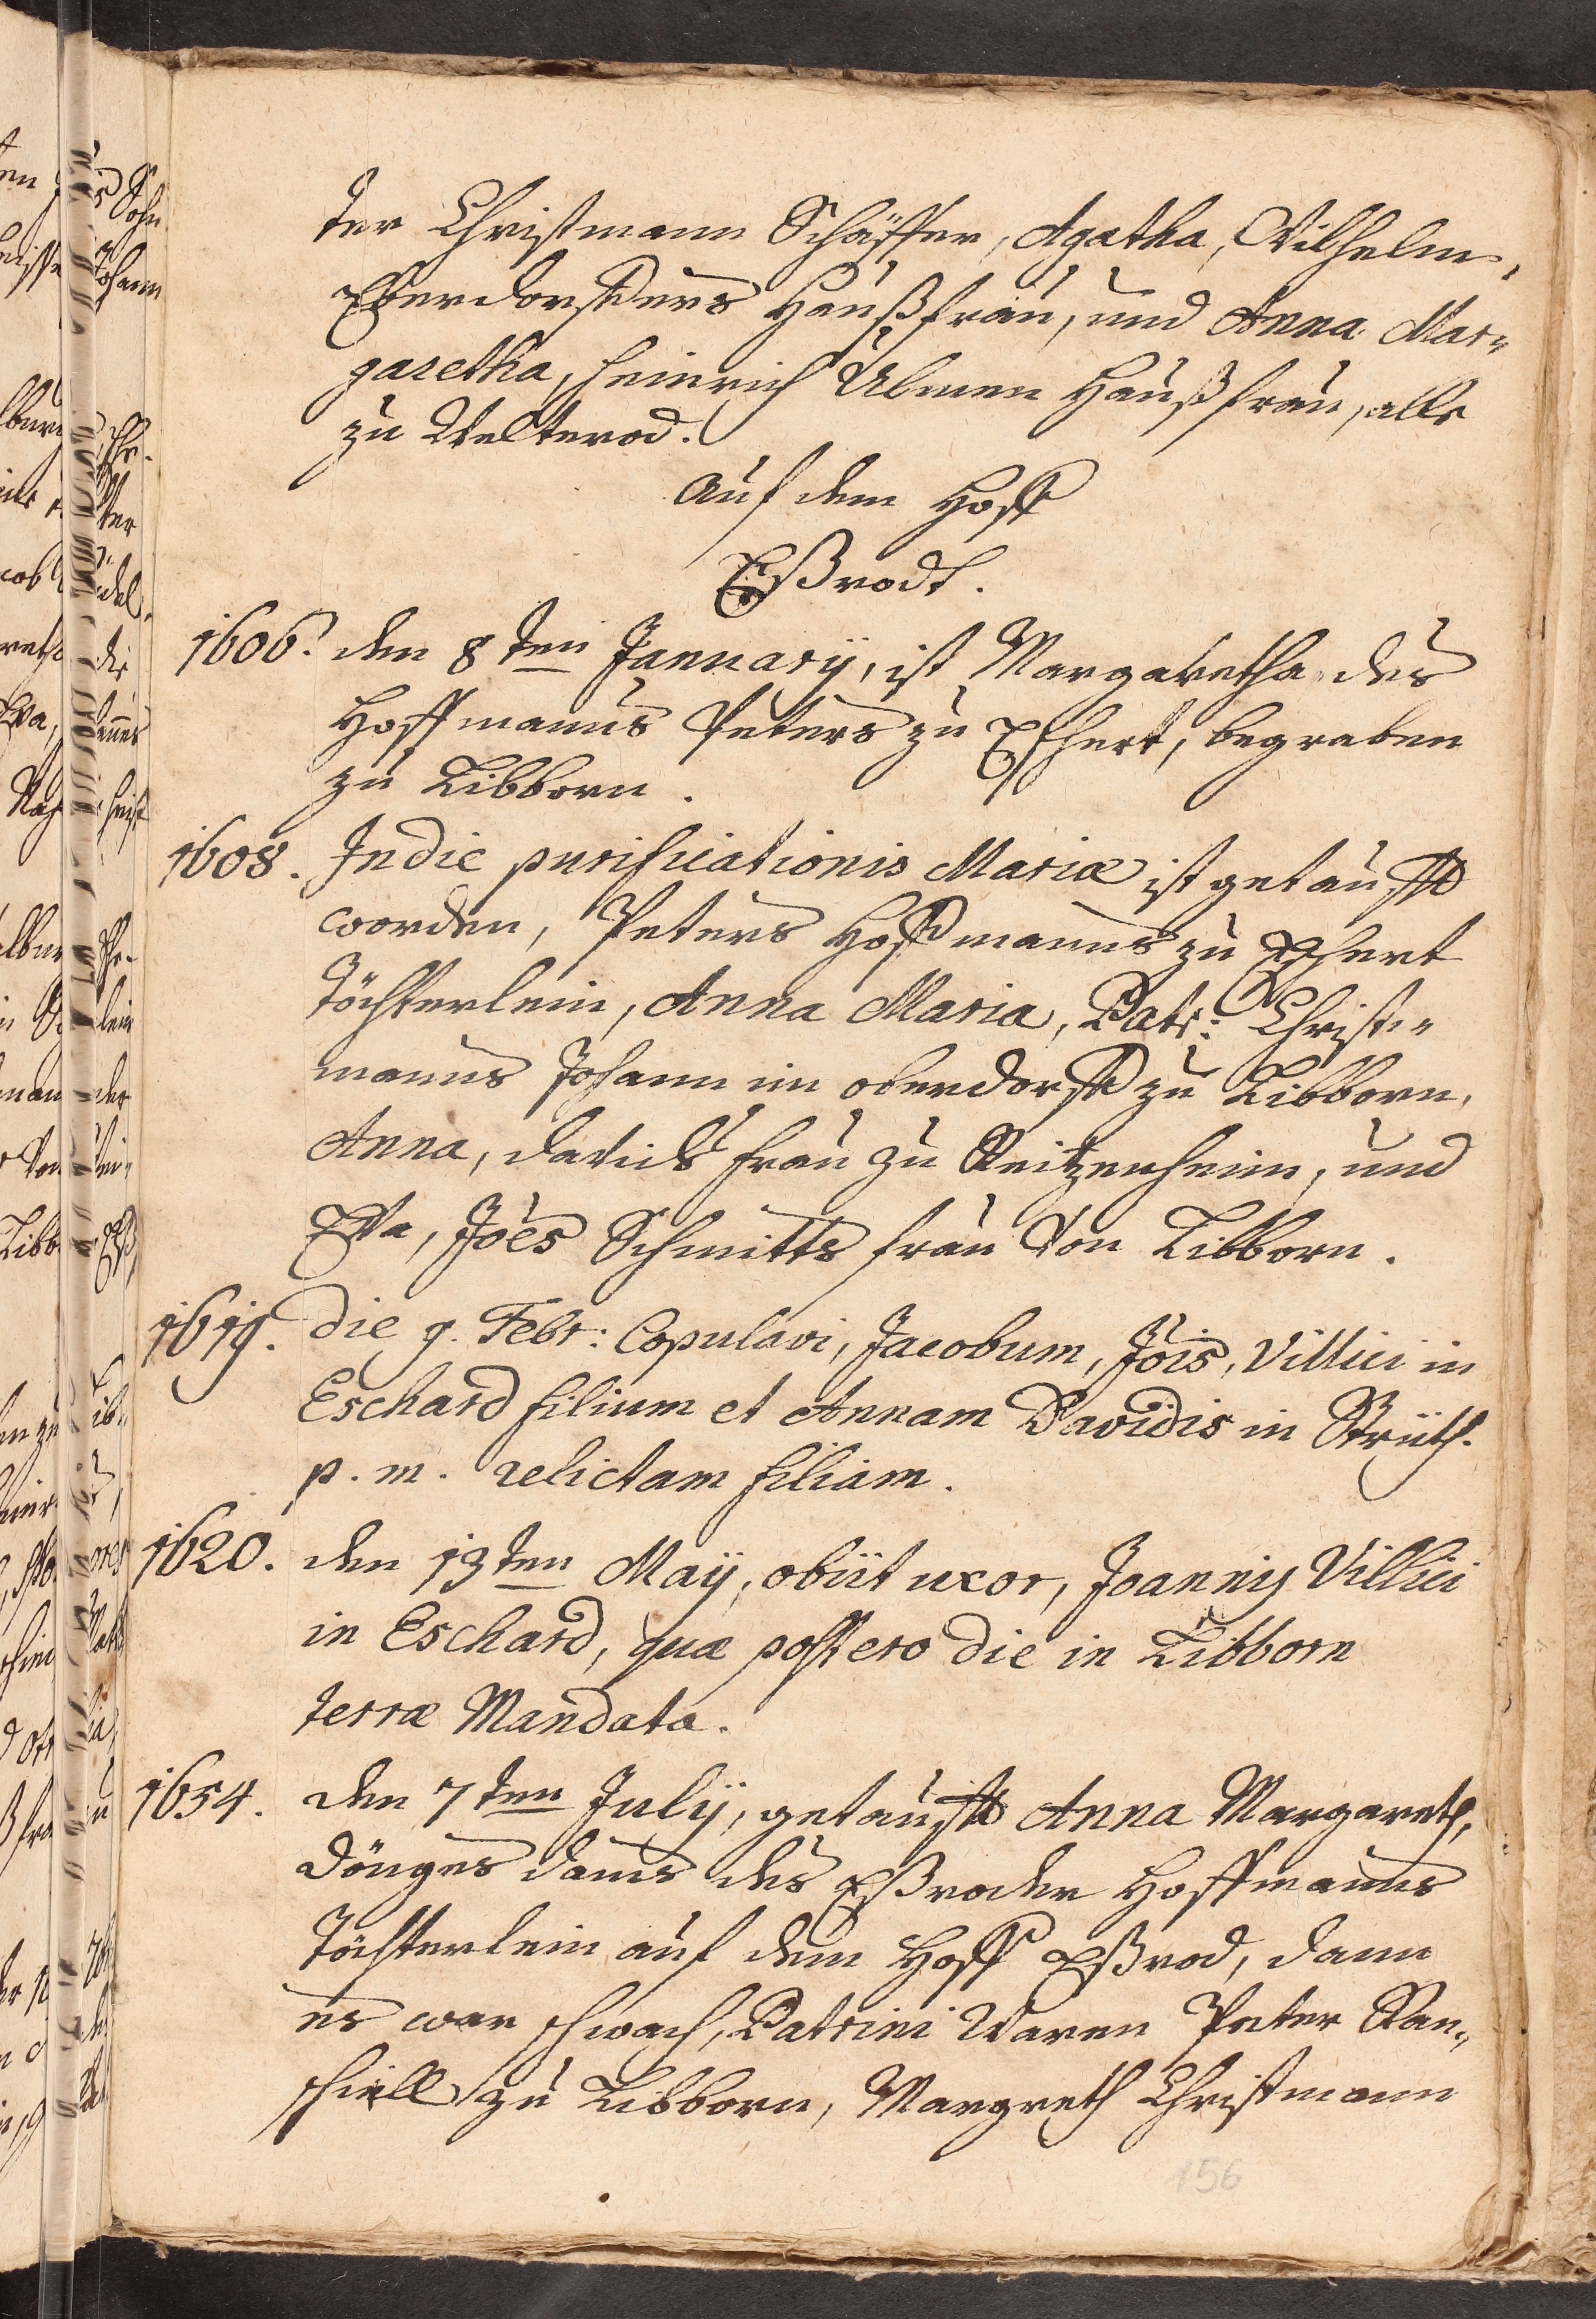 ter Christmann Schäffer, Agatha, Wilhelm,
Oberdorffers Haußfrau, und Anna Mar„
garetha, Heinrich Ulmen Haußfrau, alle
zu Welterod.
auf dem Hoff
Eßrodt.
1606. den 8ten Januarÿ, ist Margaretha des
Hoffmanns Peters zu Eschert, begraben
zu Libborn.
1608. In die purificationis Mariæ ist getaufft
worden, Peters Hoffmanns zu Eschert
Töchterlein, Anna Maria, Patr: Christ„
manns Johann im oberdorff zu Libborn,
Anna, Davids frau zu Reitzenheim, und
Eva, Joes Schmitts frau von Libborn.
1619. die 9. Febr: Copulavi, Jacobum, Jois, Villici in
Eschard filium et Annam Davidis in Strüth.
p. m. relictam filiam.
1620. den 13ten Maÿ, obiit uxor, Joannis Villici
in Eschard, quæ postero die in Libborn
terræ Mandata.
1654. den 7ten Julÿ, getaufft Anna Margareth,
Dönges des Eßroder Hoffmanns
Töchterlein auf dem Hoff Eßrod, dann
es war schwach, Patrini waren Peter Ran„
schiell zu Libborn, Margreth Christmann
156